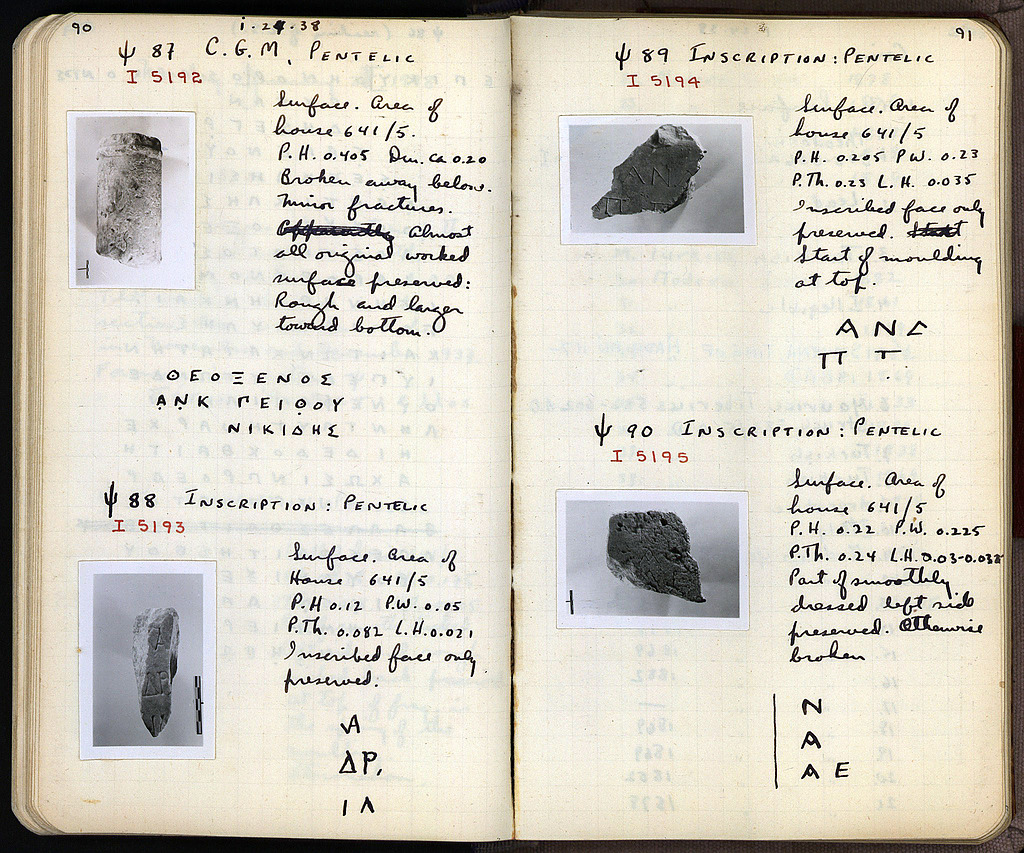 90
i·24·38
ψ 87 C.G.M. PENTELIC
I 5192
Surface. Area of
house 641/5.
P.H. 0.405 Dm. ca 0.20
Broken away below.
Minor fractures.
Apparently Almost
all original worked
surface preserved:
Rough and larger
toward bottom.
ΘΕΟΞΕΝΟΣ
ΑΝΚ ΠΕΙΘΟΥ
ΝΙΚΙΔΗΣ
ψ 88 INSCRIPTION: PENTELIC
I 5193
Surface. Area of
House 641/5
P.H 0.12 P.W. 0.05
P.Th. 0.082 L.H. 0.021
Inscribed face only
preserved.
Α
ΔΡ.
ΙΛ
91
ψ 89 INSCRIPTION: PENTELIC
I 5194
Surface. Area of
house 641/5
P.H. 0.205 P.W. 0.23
P.Th. 0.23 L.H. 0.035
Inscribed face only
preserved.
Start of moulding
at top.
ΑΝ
Π Τ
ψ 90 INSCRIPTION: PENTELIC
I 5195
Surface. Area of
house 641/5
P.H. 0.22 P.W. 0.225
P.Th. 0.24 L.H. 0.03-0.038
Part of smoothly
dressed left side
preserved. Otherwise
broken
Ν
Α
ΑΕ